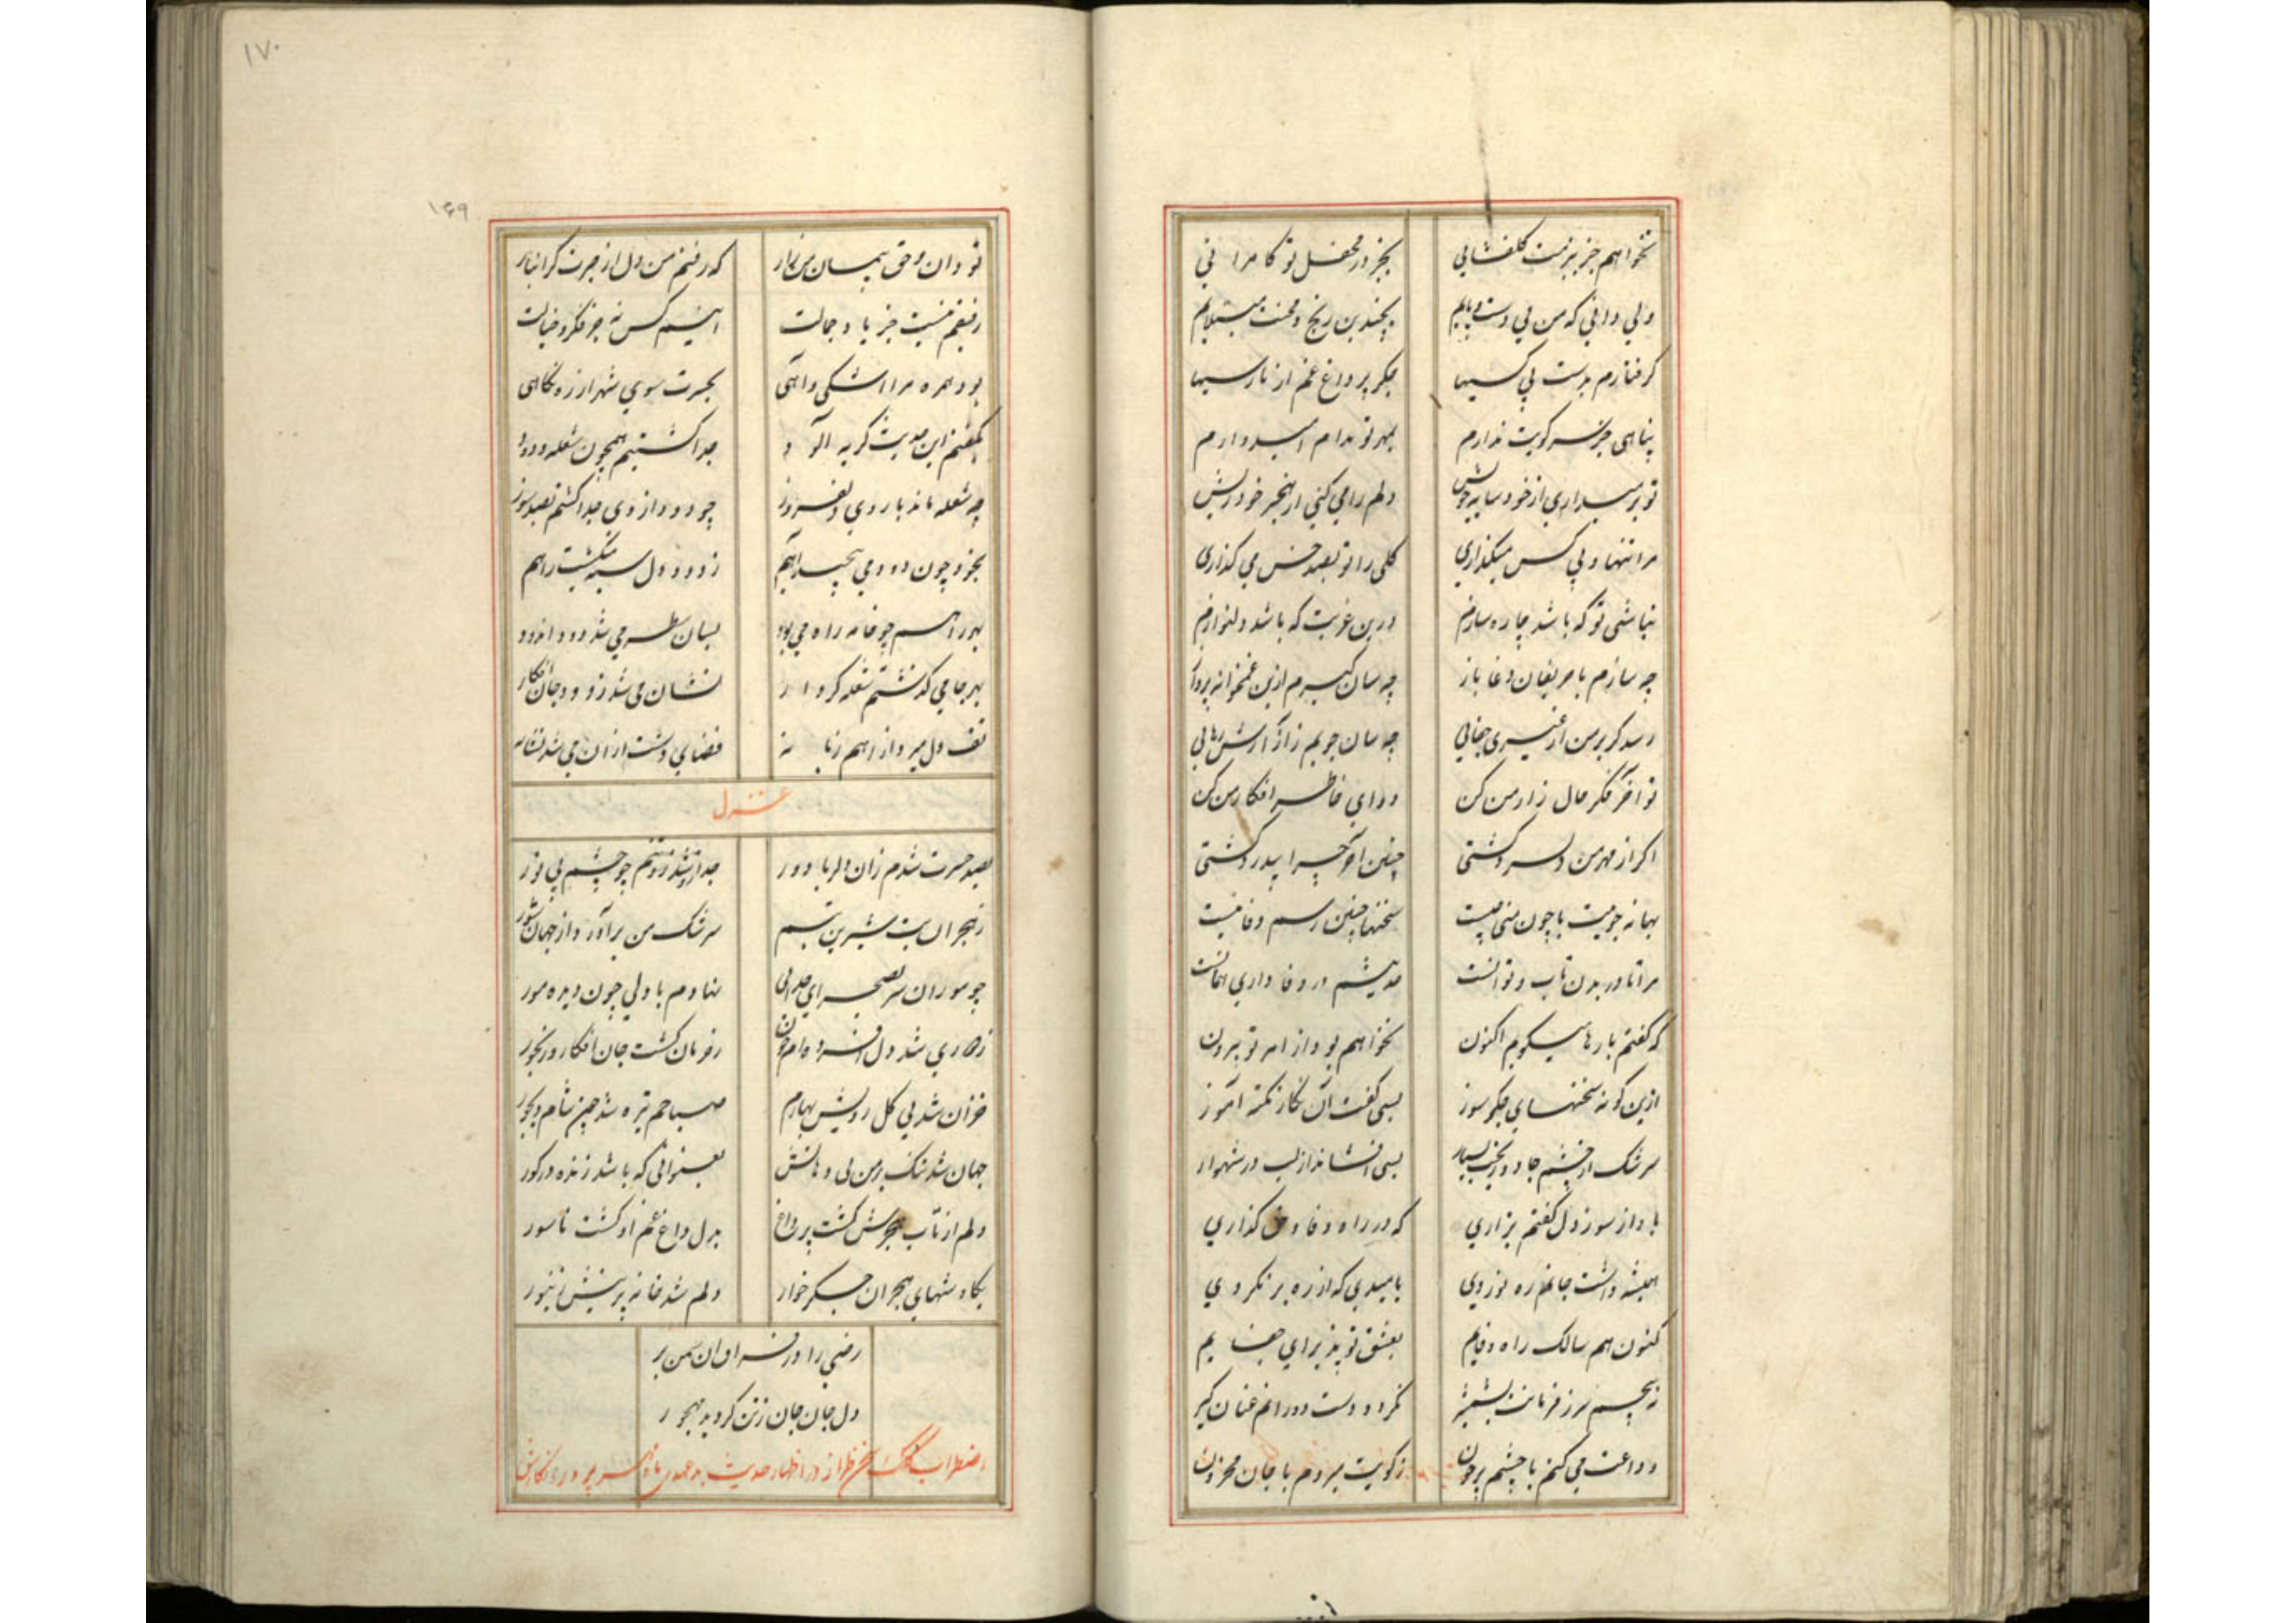 نخواهم جز ببزمت گلفشانی بجز در محفل تو کامرانی
ولی دانی که من بی دست و پایم بچندین رنج و محنت مبتلایم
گرفتارم بدست بی کسیها جگر پر داغ غم از نارسیها
پناهی جز سر کویت ندارم بمهر تو مدام امیدوارم
تو بر میداری از خود سایه خویش دلم را می کنی از خنجر خود ریش
مرا تنها و بی کس میگذاری گلی را تو بصد خس می گذاری
نباشی تو که باشد چاره سازم درین غربت که باشد دلنوازم
چه سازم با حریفان دغا باز چه سان گیرم ازین غمخانه پرواز
رسد گر بر من از غیری جفایی چه سان جویم ز آزارش رهایی
تو آخر فکر حال زار من کن دوای خاطر افکار من کن
اگر از مهر من دلسرد گشتی چنین آخر چرا بیدرد گشتی
بهانه جوییت با چون منی چیست سخنها چنین رسم وفا نیست
مرا تا در بدن تاب و توانست حدیثم در وفاداری همانست
که گفتم بارها میگویم اکنون نخواهم بود از امر تو بیرون
ازین گونه سخنهای جگرسوز بسی گفت آن نگار نکته آموز
سرشک از چشم جادو ریخت بسیار بسی افشاند از لب در شهوار
باو از سوز دل گفتم بزاری که در راه وفا و حق گذاری
همیشه داشت جانم ره نوردی بامیدی که از ره بر نگردی
کنون هم سالک راه وفایم بعشق تو پذیرای جفایم
نه پیچم سر ز فرمانت بشمشیر نگردد دست دورانم عنان گیر
وداعت می کنم با چشم پرخون ز کویت میروم با جان محزون
۱۷۰
۱۶۹
تو دان و حق پیمان من زار که رفتم من دل از حیرت گرانبار
رفیقم نیست جز یاد جمالت انیسم کس نه جز فکر و خیالت
بود همره مرا اشکی و آهی بحسرت سوی شهر از ره نگاهی
بگفتم این حدیث گریه آلود جدا گشتیم همچون شعله و دود
چه شعله ماند با روی دلفروز چو دود از وی جدا گشتم بصد سوز
بخود چون دود می پیچید آهم ز دود دل سیه میگشت راهم
بهر راهم چو خامه راه می بود بسان سطر می شد دود اندود
بهر جا می گذشتم شعله کردار نشان می شد ز دود جان افکار
تف دل میزد از آهم زبانه فضای دشت از آن می شد نشانه
غزل
بصد حسرت شدم زان دلربا دور جدا زو شد تنم چو چشم بی نور
ز هجران بت شیرین تبسم سرشک من برآورد از جهان شور
چو موران سر بصحرای جدایی نهادم با دلی چون دیده مور
شد دل افسرده ام خون رفو نان گشت جان افکار و رنجور
خزان شد بی گل رویش بهارم صباحم تیره شد چون شام دیجور
جهان شد تنگ بر من بی دهانش بعنوانی که باشد زنده در گور
دلم از تاب هجرش گشت پر داغ بدل داغ غم او گشت ناسور
بگاه شبهای هجران جگر خوار دلم شد خانه پر نیش زنبور
رضی را در فراق آن سمن بر
دل جان جان ز تن گردید مهجور
اضطراب کلک سخن طراز در اظهار حدیث